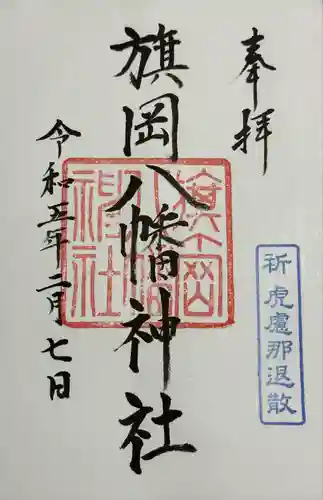 奉拝
旗岡八幡神社
令和五年二月七日
祈 虎慮那退散
旗岡八幡神社